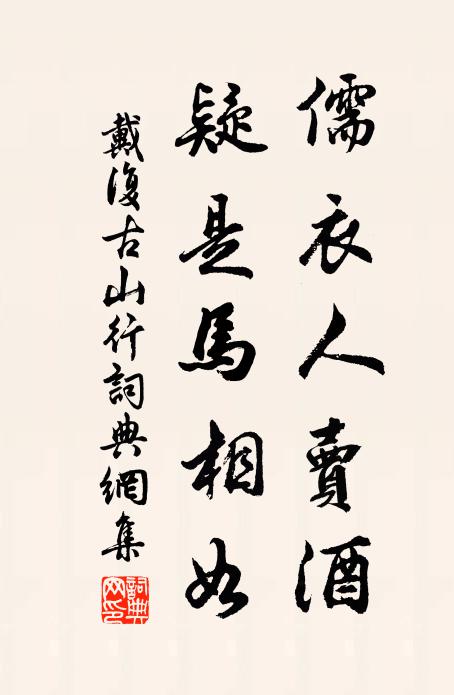 儒衣人賣酒
疑是馬相如
戴復古山行詞典網集
詞典網印